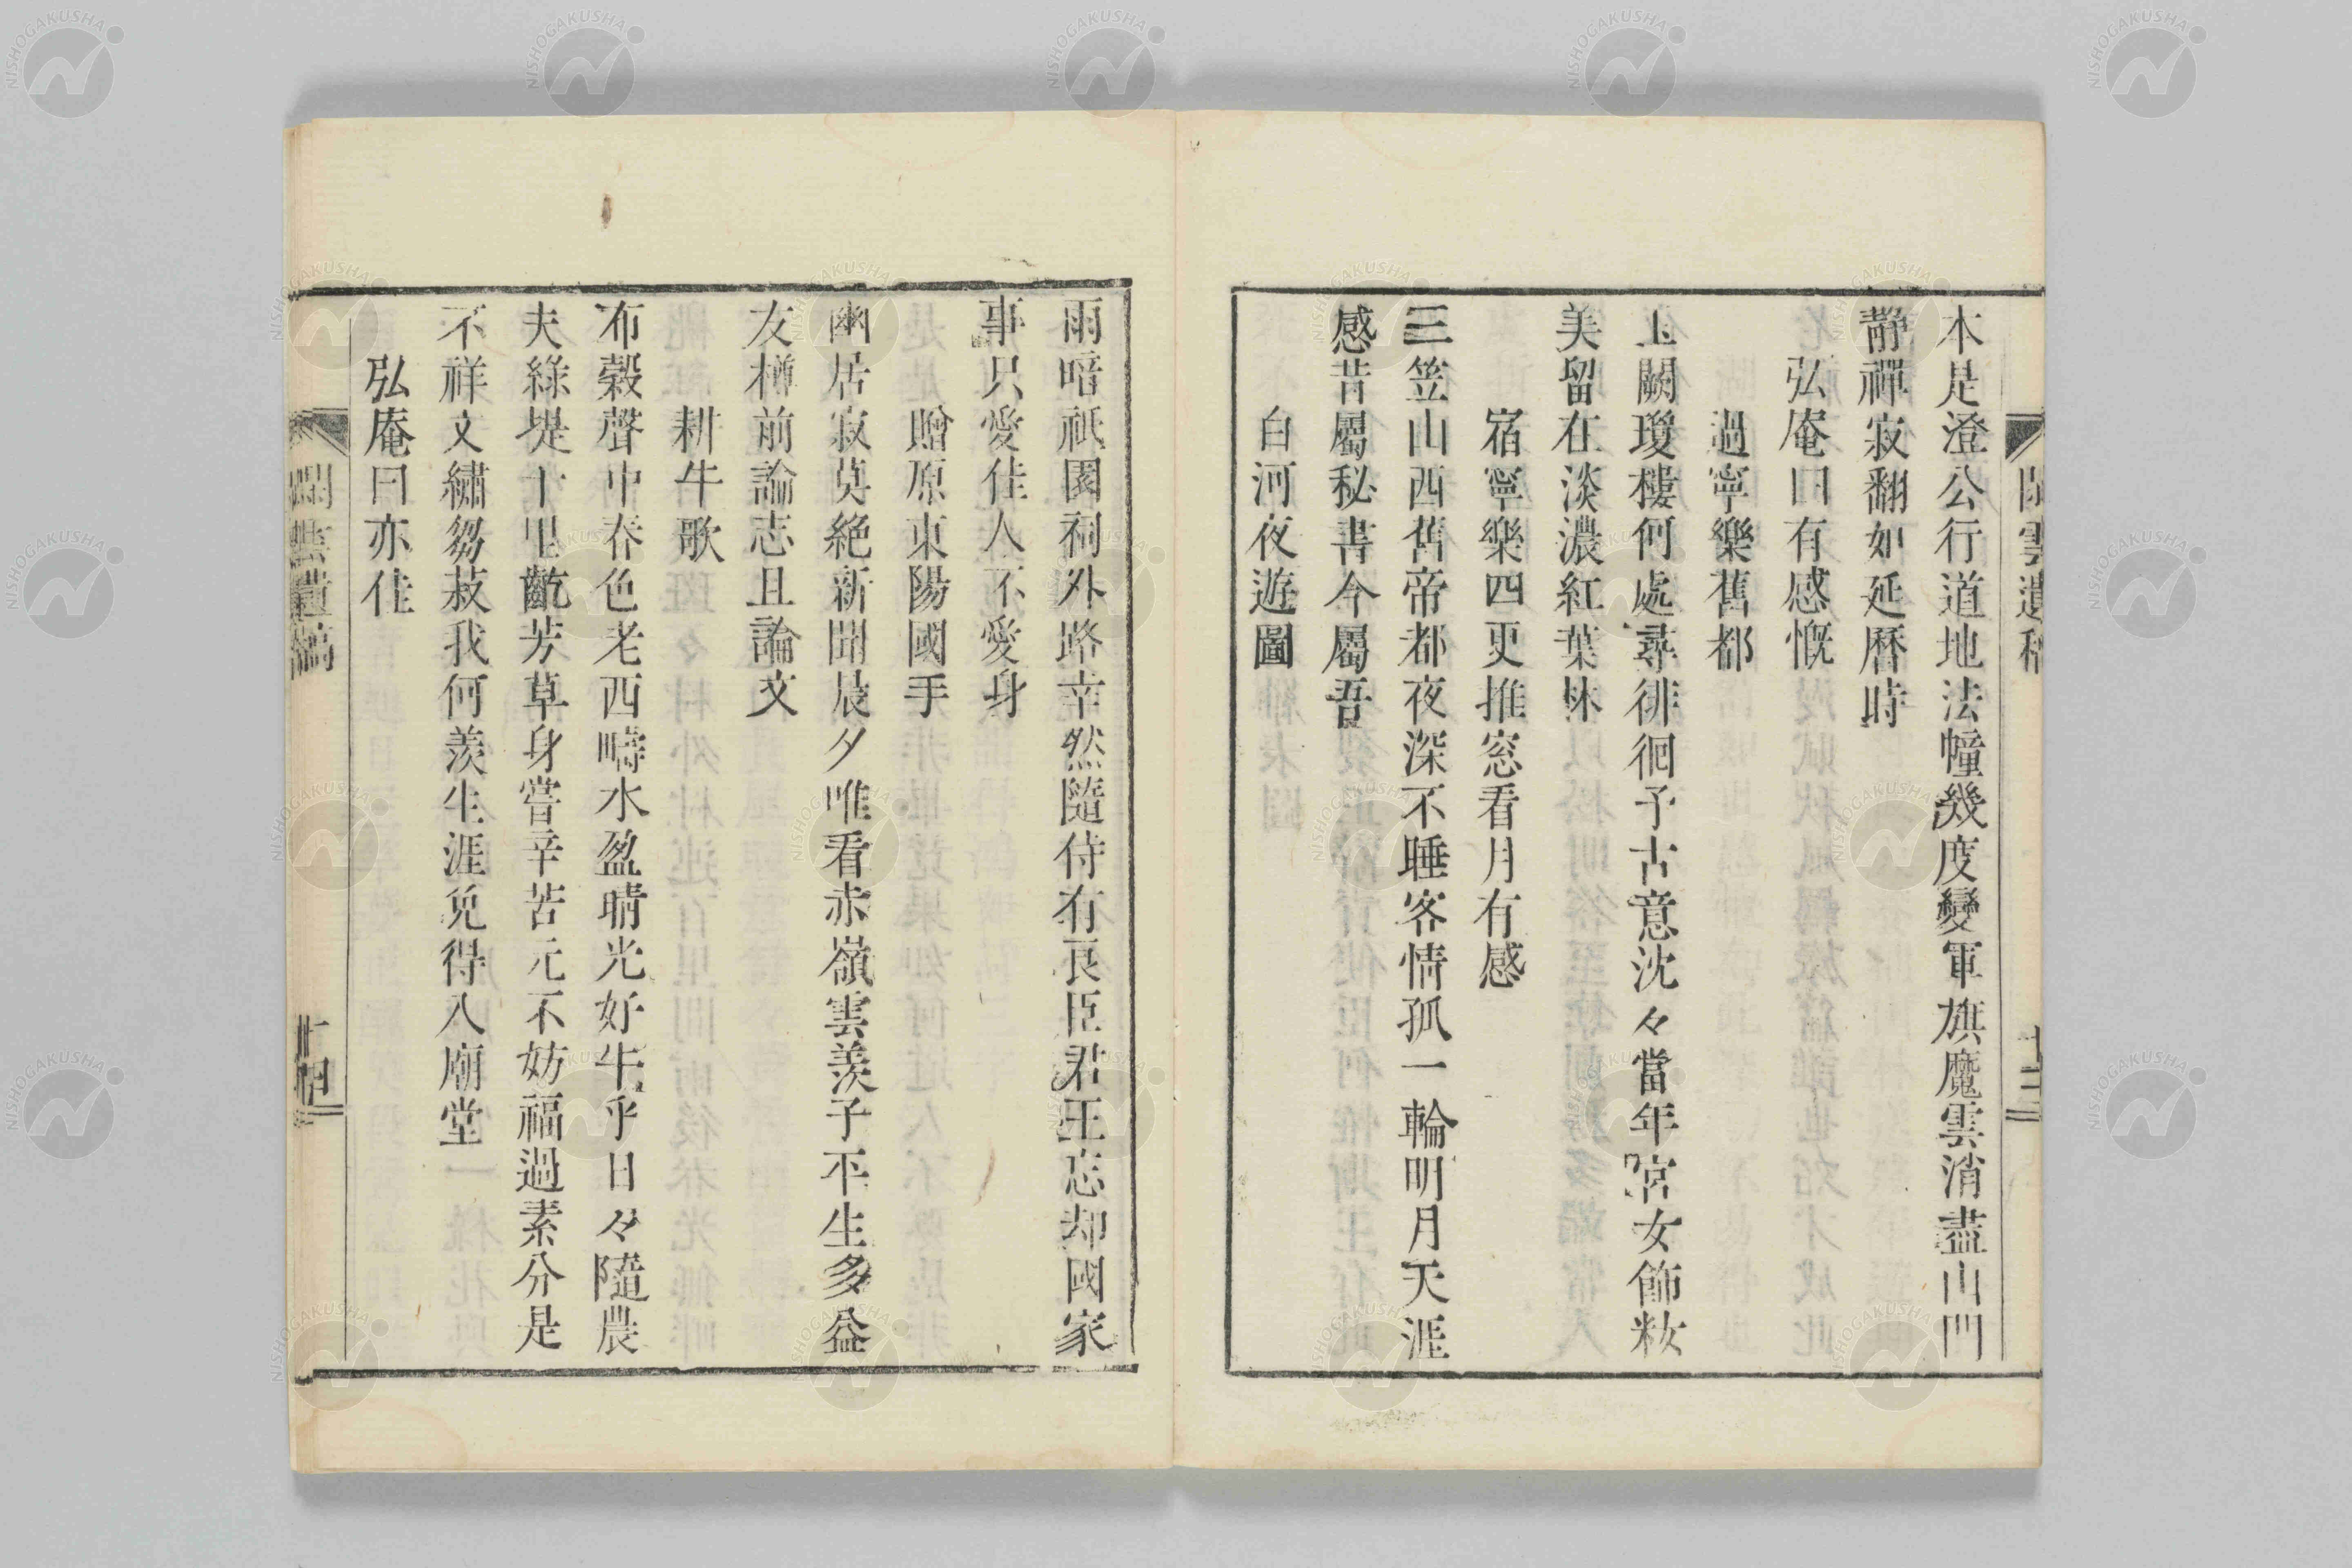 本是澄公行道地法幢幾度變軍旗魔雲消盡山門
靜禪寂翻如延曆時
弘庵曰有感慨
過寧樂舊都
玉闕瓊樓何處尋徘徊予古意沈々當年宮女飾粧
美留在淡濃紅葉林
宿寧樂四更推窓看月有感
三笠山西舊帝都夜深不睡客情孤一輪明月天涯
感昔屬秘書今屬吾
白河夜遊圖
雨暗祇園祠外路幸然隨侍有良臣君王忘却國家
事只愛佳人不愛身
贈原東陽國手
幽居寂莫絕新聞晨夕唯看赤嶺雲羨子平生多益
友樽前論志且論文
耕牛歌
布穀聲中春色老西疇水盈晴光好牛乎日々隨農
夫綠堤十里齕芳草身嘗辛苦元不妨福過素分是
不祥文繡芻菽我何羨生涯免得入廟堂
弘庵曰亦佳
閑雲遺稿
十三
閑雲遺稿
NISHOGAKUSHA